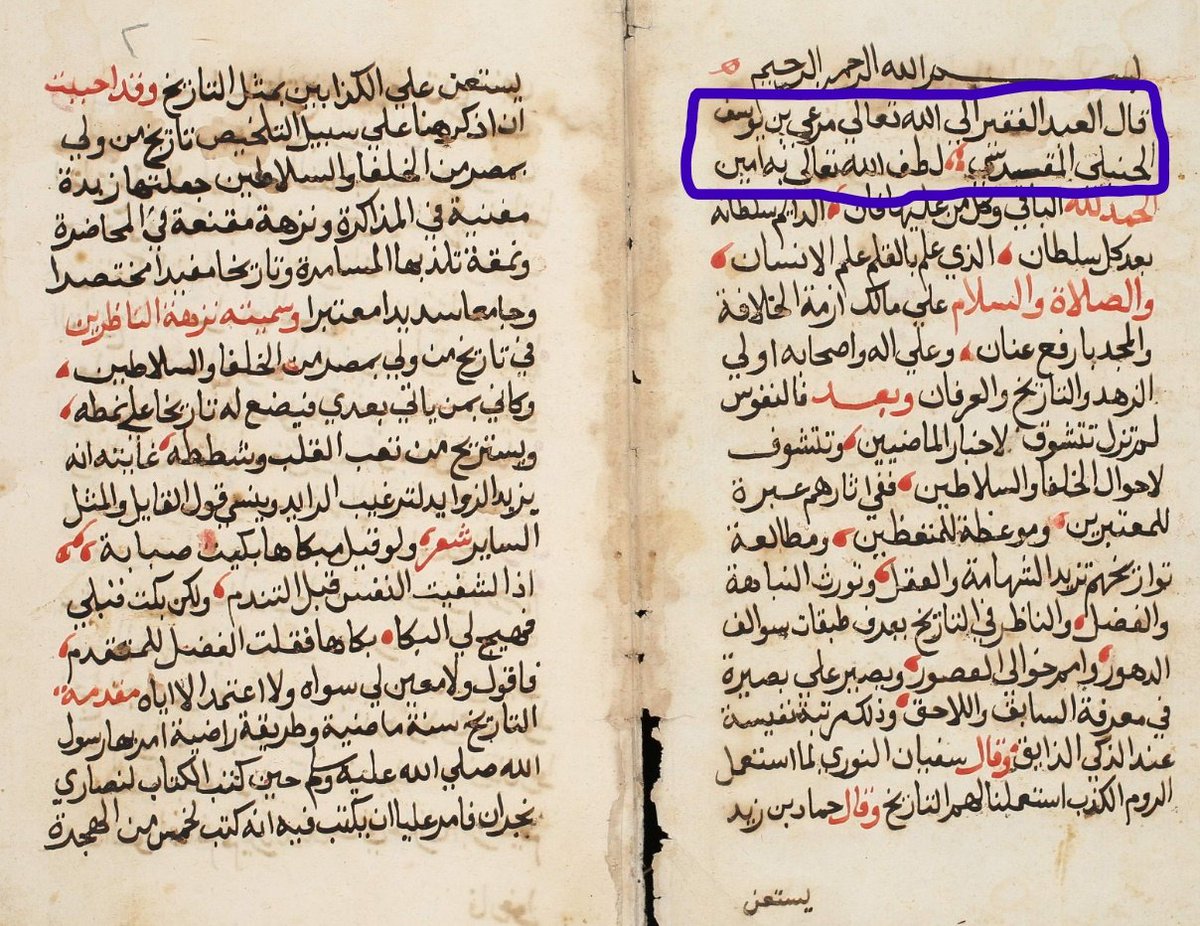 بسم الله الرحمن الرحيم
قال العبد الفقير الى الله تعالي مرعي بن يوسف
الحنبلي المقدسي لطف الله تعالى به امين
الحمد لله الباقي وكل من عليها فان الدايم سلطانه
بعد كل سلطان الذي علم بالقلم علم الانسان
والصلاة والسلام علي مالك ازمة الخلافة
والمجد بارفع عنان وعلي اله واصحابه اولي
الزهد والتاريخ والعرفان وبعد فالنفوس
لم تزل تتشوق لاخبار الماضيين وتتشوف
لاحوال الخلفا والسلاطين ففي اثارهم عبرة
للمعتبرين وموعظة للمتعظين ومطالعة
تواريخهم تزيد الشهامة والعقل وتورث النباهة
والفضل والناظر في التاريخ يعرف طبقات سوالف
الدهور وامم خوالى العصور ويصير علي بصيرة
في معرفة السابق واللاحق وذلك مرتبة نفيسة
عند الذكي الذايق وقال سفيان الثوري لما استعمل
الروم الكذب استعملنا لهم التاريخ وقال حماد بن زيد
يستعن
٢
يستعن علي الكذابين بمثل التاريخ وقد احببت
ان اذكر هنا علي سبيل التلخيص تاريخ من ولي
بمصر من الخلفا والسلاطين جعلتها زبدة
مغنية في المذاكرة ونزهة مقنعة في المحاضرة
وتمقة تلذ بها المسامرة وتاريخا مفيدا مختصرا
وجامعا سديدا معتبرا وسميته نزهة الناظرين
في تاريخ من ولي بمصر من الخلفا والسلاطين
وكاني بمن ياتي بعدي فيضع له تاريخا علي نمطه
ويستريح من تعب القلب وشططه غايته انه
يزيد الزوايد لترغيب الرايد وينسي قول القايل والمثل
الساير شعر ولو قبل مبكاها بكيت صبابة
اذا لشفيت النفس قبل التندم ولكن بكت قبلي
فهيج لي البكا بكاها فقلت الفضل للمتقدم
فاقول ولا معين لي سواه ولا اعتمد الا اياه مقدمة
التاريخ سنة ماضية وطريقة راضية امر بها رسول
الله صلي الله عليه وسلم حين كتب الكتاب لنصاري
نجران فامر عليا ان يكتب فيه انه كتب لخمس من الهجرة